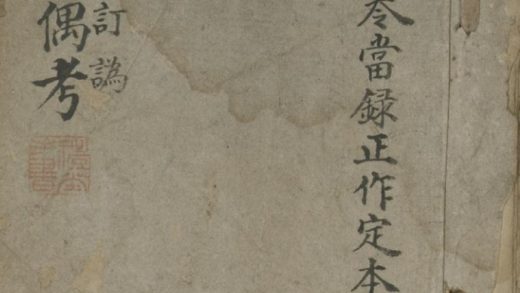 當録正作定本
訂譌
偶考